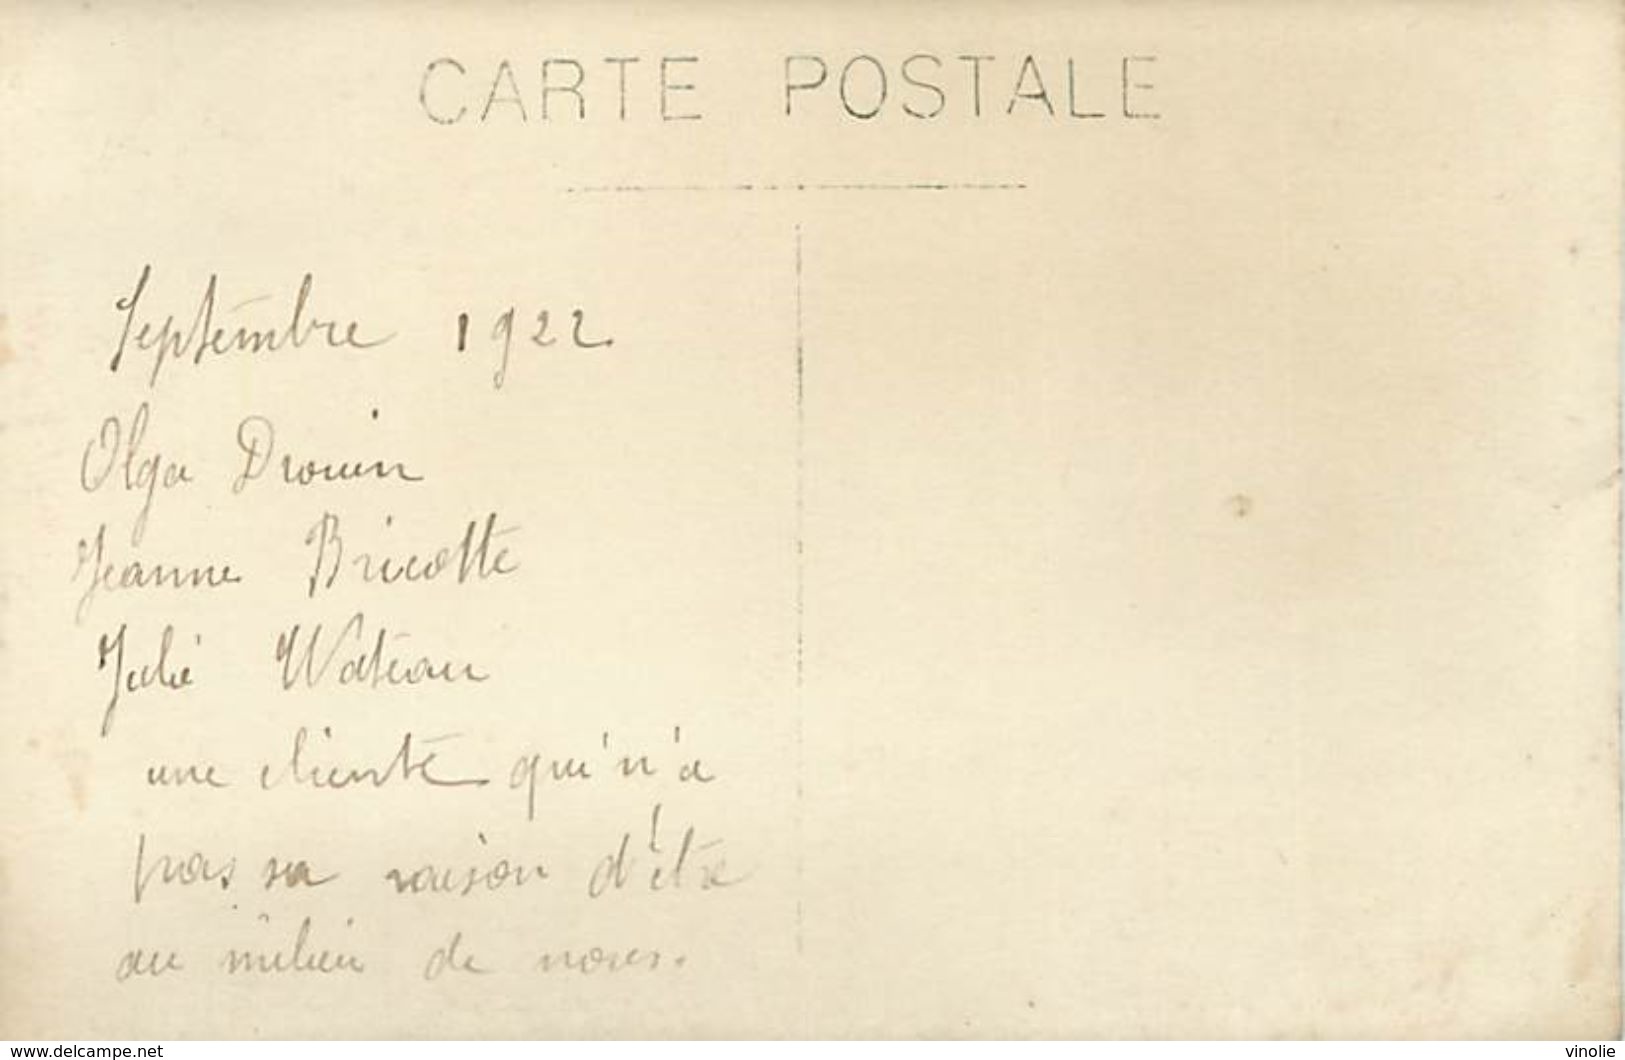 CARTE POSTALE
Septembre 1922
Olga Drouin
Jeanne Bricotte
Julie Wateau
une cliente qui n'a
pas sa raison d'être
au milieu de nous.
delcampe.net
vinolie